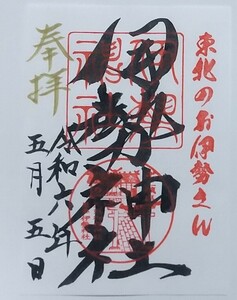 東北のお伊勢さん
奉拝
伊勢神社
令和六年
五月五日